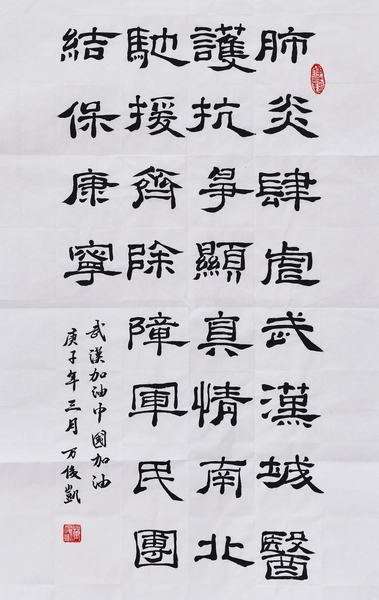 肺炎肆虐武漢城醫
護抗爭顯真情南北
馳援齊除障軍民團
結保康寧
武漢加油中國加油
庚子年三月万俊凱